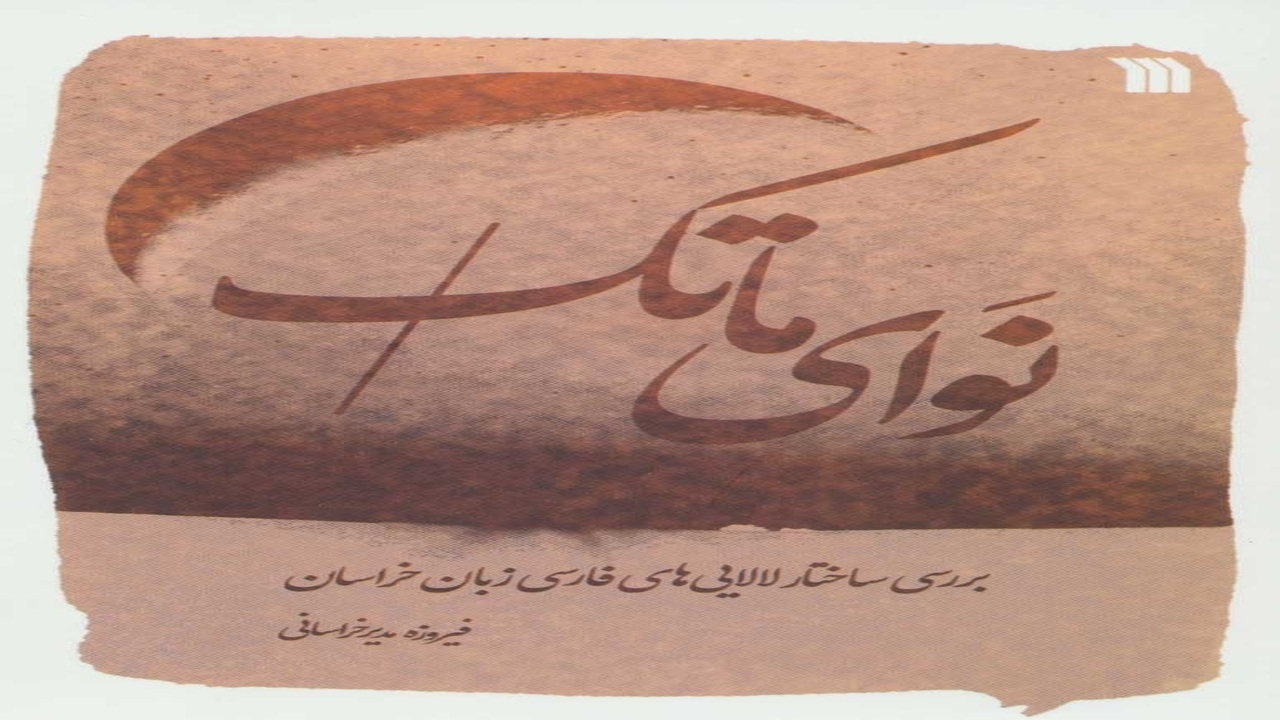 نَوای ماتک
بررسی ساختار لالایی‌های فارسی زبان خراسان
فیروزه مدیرخراسانی